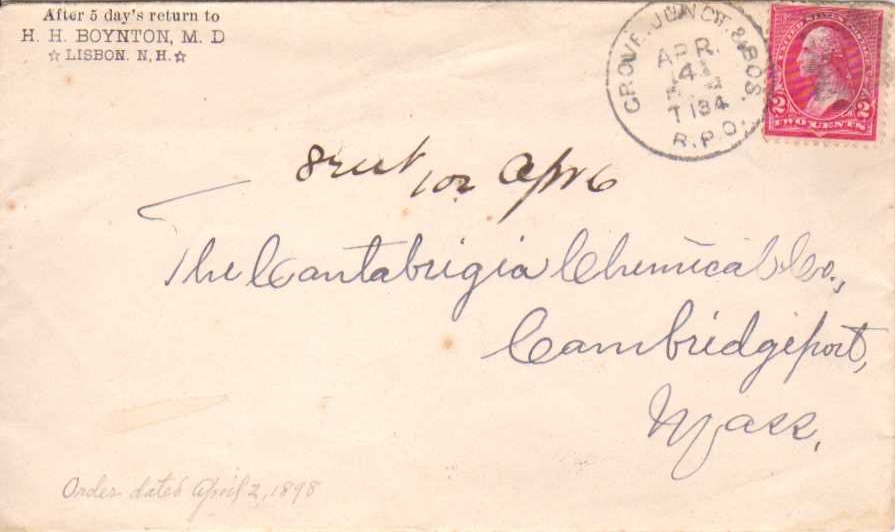 After 5 day's return to
H. H. BOYNTON, M. D
☆ LISBON. N, H. ☆
GROVE. JUNCT. & BOS.
APR.
4
T 134
R.P.O.
UNITED STATES POSTAGE
2 2
TWO CENTS
102 Apr 6
The Cantabrigia Chemical Co.,
Cambridgeport,
Mass,
Order dated April 2, 1898